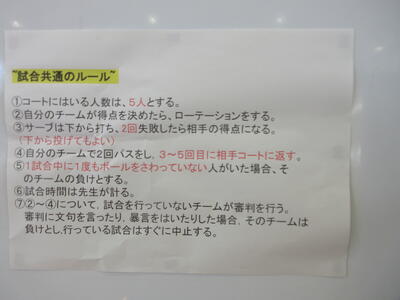 ~試合共通のルール~
①コートにはいる人数は、5人とする。
②自分のチームが得点を決めたら、ローテーションをする。
③サーブは下から打ち、2回失敗したら相手の得点になる。
(下から投げてもよい)
④自分のチームで2回パスをし、3~5回目に相手コートに返す。
⑤1試合中に1度もボールをさわっていない人がいた場合、そ
のチームの負けとする。
⑥試合時間は先生が計る。
⑦②~④について，試合を行っていないチームが審判を行う。
審判に文句を言ったり、暴言をはいたりした場合，そのチームは
負けとし,行っている試合はすぐに中止する。